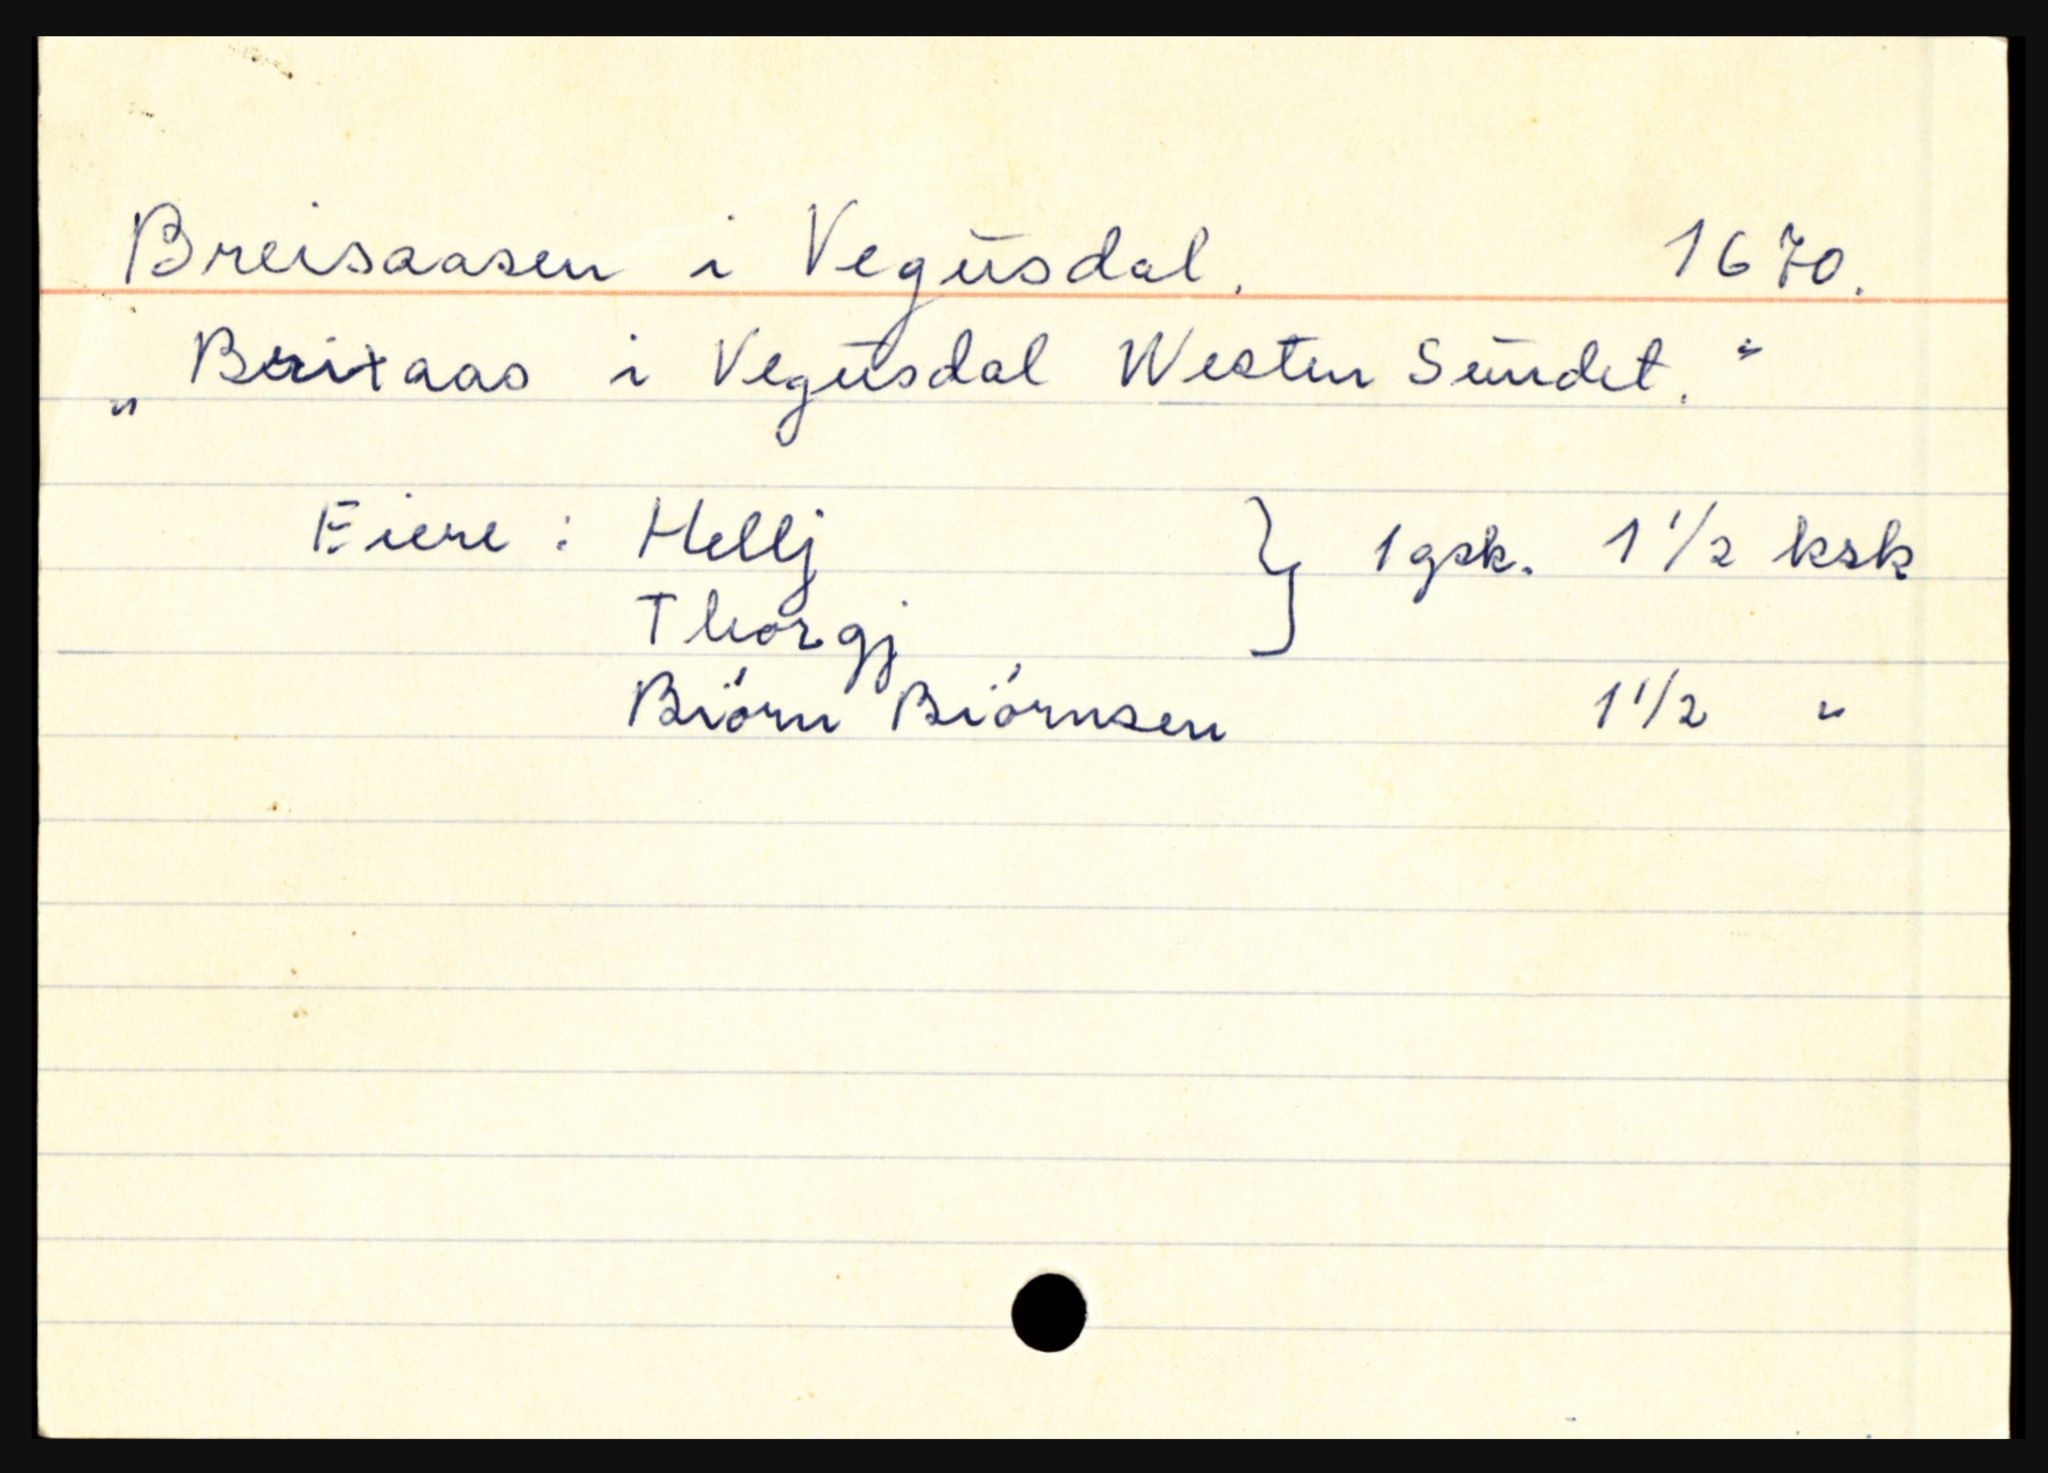 Breisaasen i Vegusdal. 1670.
„ Brixaas i Vegusdal Westen Sundet. “
Eiere : Hellj } 1 gsk. 1 1/2 ksk
Thorgj
Biörn Biörnsen 1 1/2 "